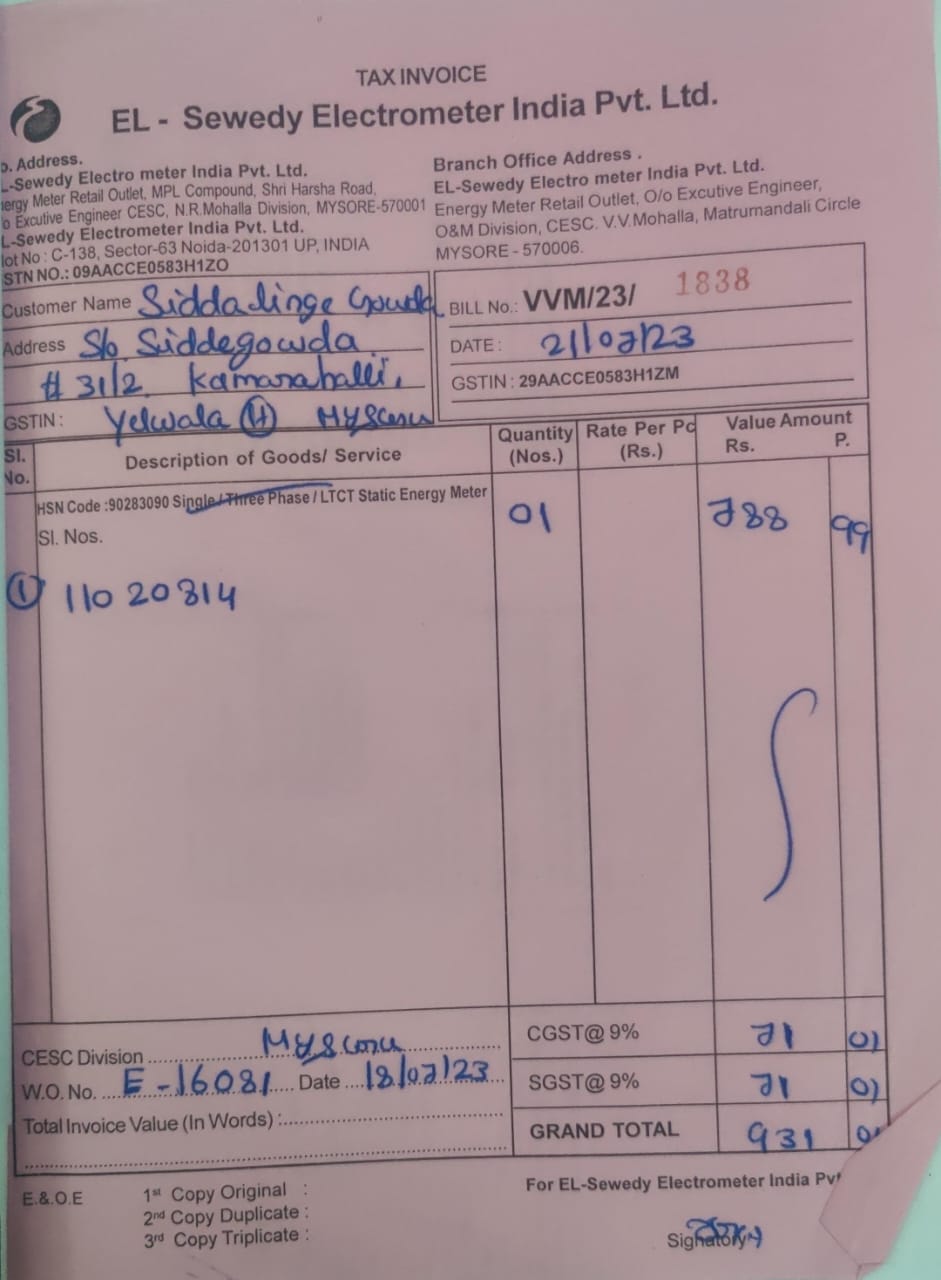 TAX INVOICE
EL - Sewedy Electrometer India Pvt. Ltd.
o. Address.
L-Sewedy Electro meter India Pvt. Ltd.
nergy Meter Retail Outlet, MPL Compound, Shri Harsha Road,
o Excutive Engineer CESC, N.R.Mohalla Division, MYSORE-570001
L-Sewedy Electrometer India Pvt. Ltd.
lot No : C-138, Sector-63 Noida-201301 UP, INDIA
STN NO.: 09AACCE0583H1ZO
Branch Office Address .
EL-Sewedy Electro meter India Pvt. Ltd.
Energy Meter Retail Outlet, O/o Excutive Engineer,
O&M Division, CESC. V.V.Mohalla, Matrumandali Circle
MYSORE - 570006.
Customer Name Siddalinge Gowda
Address S/o Siddegowda
# 31/2 Kamarahalli,
GSTIN : Yelwala (H) Mysoru
BILL No.: VVM/23/ 1838
DATE : 21/07/23
GSTIN : 29AACCE0583H1ZM
Sl. No. Description of Goods/ Service Quantity (Nos.) Rate Per Pc (Rs.) Value Amount Rs. P.
HSN Code :90283090 Single / Three Phase / LTCT Static Energy Meter 01 788 99
Sl. Nos.
① 11020314
CESC Division Mysoru
W.O. No. E-16081 Date 18/07/23
Total Invoice Value (In Words) :
CGST@ 9% 71 01
SGST@ 9% 71 01
GRAND TOTAL 931 01
E.&.O.E
1st Copy Original :
2nd Copy Duplicate :
3rd Copy Triplicate :
For EL-Sewedy Electrometer India Pvt
Signatory